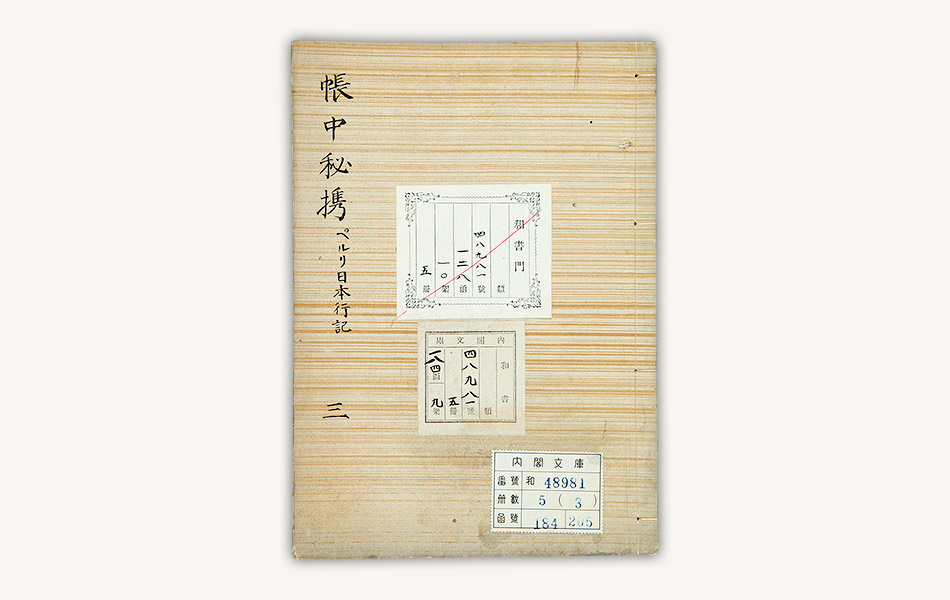 帳中秘携
ペルリ日本行記
三
和書門
類
四八九八一號
一二八函
一〇架
五冊
內閣文庫
和書
類
四八九八一號
五冊
一八四函
九架
內閣文庫
番號 和 48981
冊數 5 (3)
函號 184 205